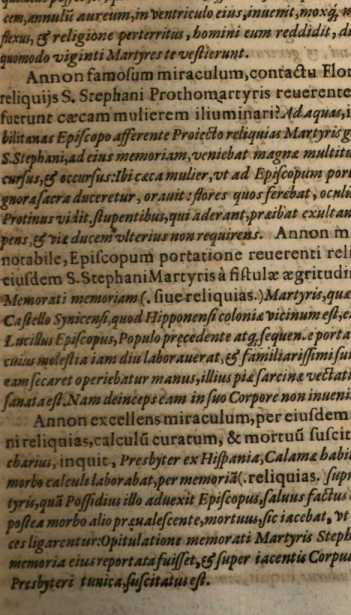 cem, annulū aureum, in ventriculo eius, inuenit, moxq́;
flexus, & religione perterritus, homini eum reddidit, di
quomodo viginti Martyres te vestierunt.
Annon famosum miraculum, contactu Flor
reliquijs S. Stephani Prothomartyris reuerente
fuerunt cæcam mulierem iliuminari? Ad aquas, i
bilitanas Episcopo afferente Proiecto reliquias Martyris g
S. Stephani, ad eius memoriam, veniebat magnæ multitu
cursus, & occursus: Ibi cæca mulier, vt ad Episcopum port
gnora sacra duceretur, orauit: flores quos ferebat,
Protinus vidit, stupentibus, qui aderant, præibat exultan
pens, & viæ ducem vlterius non requirens. Annon m
notabile, Episcopum portatione reuerenti reli
eiusdem S. Stephani Martyris à fistulæ ægritudin
Memorati memoriam (. siue reliquias.) Martyris, quæ
Castello Synicensi, quod Hipponensi coloniæ vicinum est, e
Lucillus Episcopus, Populo pręcedente atq́; sequen.e porta
cuius molestia iam diu laborauerat, & familiarissimi sui
eam secaret operiebatur manus, illius piæ sarcinæ vectati
sanata est. Nam deinceps eam in suo Corpore non inueni
Annon excellens miraculum, per eiusdem
ni reliquias, calculū curatum, & mortuū suscit
charius, inquit, Presbyter ex Hispania, Calamæ habit
morbo calculi laborabat, per memoriā (. reliquias. supr
tyris, quā Possidius illo aduexit Episcopus, saluus factus
postea morbo alio pręualescente, mortuus, sic iacebat, vt
ces ligarentur: Opitulatione memorati Martyris Steph
memoria eius reportata fuisset, & super iacentis Corpus
Presbyteri tunica, suscitatus est.